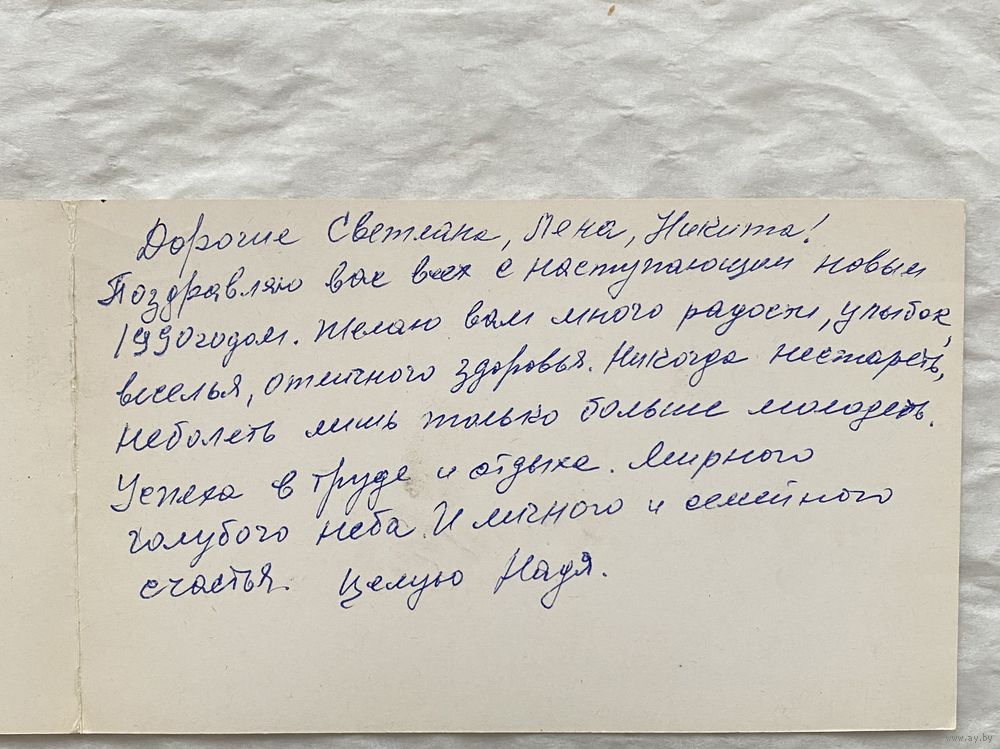 Дорогие Светлана, Лена, Никита!
Поздравляю вас всех с наступающим новым
1990годом. Желаю вам много радости, улыбок,
веселья, отличного здоровья. Никогда нестареть,
неболеть лишь только больше молодеть.
Успеха в труде и отдыхе. Мирного
голубого неба. И личного и семейного
счастья. Целую Надя.
www.ay.by